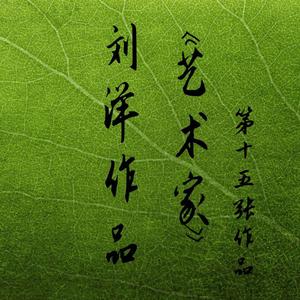 第十五张作品
《艺术家》
刘洋作品